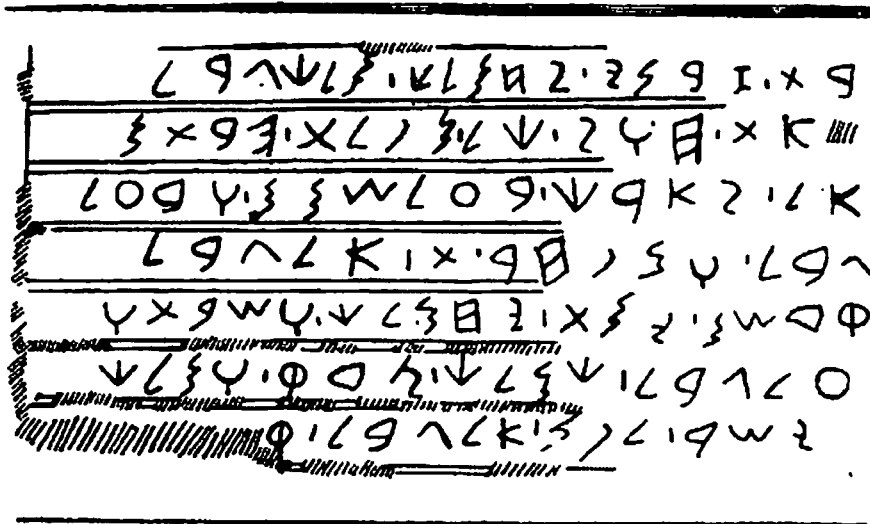 𐤁𐤕𐤟𐤆𐤁𐤍𐤉𐤟𐤉𐤇𐤌𐤋𐤊𐤟𐤌𐤋𐤊𐤟𐤂𐤁𐤋
𐤀𐤕𐤟𐤇𐤅𐤉𐤟𐤊𐤋𐤟𐤌𐤐𐤋𐤕𐤟𐤄𐤁𐤕𐤌
𐤀𐤋𐤟𐤉𐤀𐤓𐤊𐤟𐤁𐤏𐤋𐤔𐤌𐤌𐤟𐤅𐤁𐤏𐤋
𐤂𐤁𐤋𐤟𐤅𐤌𐤐𐤇𐤓𐤟𐤕𐤟𐤀𐤋𐤂𐤁𐤋
𐤒𐤃𐤔𐤌𐤟𐤉𐤌𐤕𐤟𐤉𐤇𐤌𐤋𐤊𐤟𐤅𐤔𐤍𐤕𐤅
𐤏𐤋𐤂𐤁𐤋𐤟𐤊𐤌𐤋𐤊𐤟𐤑𐤃𐤒𐤟𐤅𐤌𐤋𐤊
𐤉𐤔𐤓𐤟𐤋𐤐𐤍𐤟𐤀𐤋𐤂𐤁𐤋𐤟𐤒